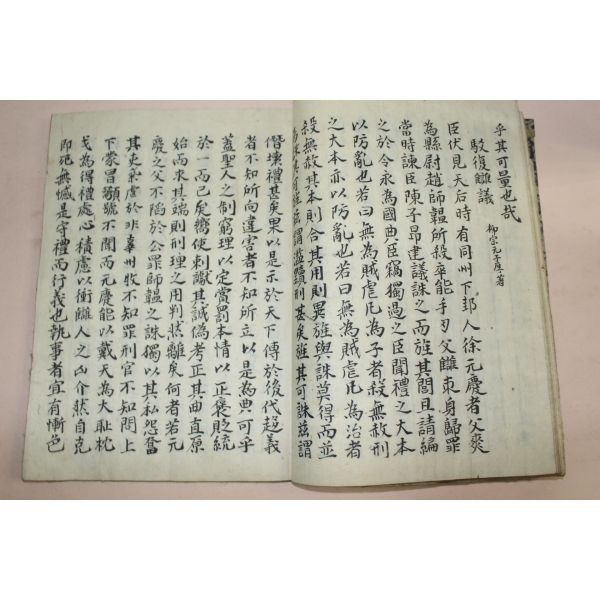 乎其可量也哉
駁復讎議
柳宗元子厚著
臣伏見天后時有同州下邽人徐元慶者父爽
為縣尉趙師韞所殺卒能手刃父讎束身歸罪
當時諫臣陳子昂建議誅之而旌其閭且請編
之於令永為國典臣竊獨過之臣聞禮之大本
以防亂也若曰無為賊虐凡為子者殺無赦刑
之大本亦以防亂也若曰無為賊虐凡為治者
殺無赦其本則合其用則異旌與誅莫得而並
誅其可旌茲謂濫黷刑甚矣旌其可誅茲謂
僭壞禮甚矣果以是示於天下傳於後代趍義
者不知所向違害者不知所立以是為典可乎
蓋聖人之制窮理以定賞罰本情以正褒貶統
於一而已矣嚮使刺讞其誠偽考正其曲直原
始而求其端則刑理之用判然離矣何者若元
慶之父不陷於公罪師韞之誅獨以其私怨奮
其吏氣虐於非辜州牧不知罪刑官不知問上
下蒙冒顲號不聞而元慶能以戴天為大耻枕
戈為得禮處心積慮以衝讎人之胷介然自克
即死無憾是守禮而行義也執事者宜有慚色